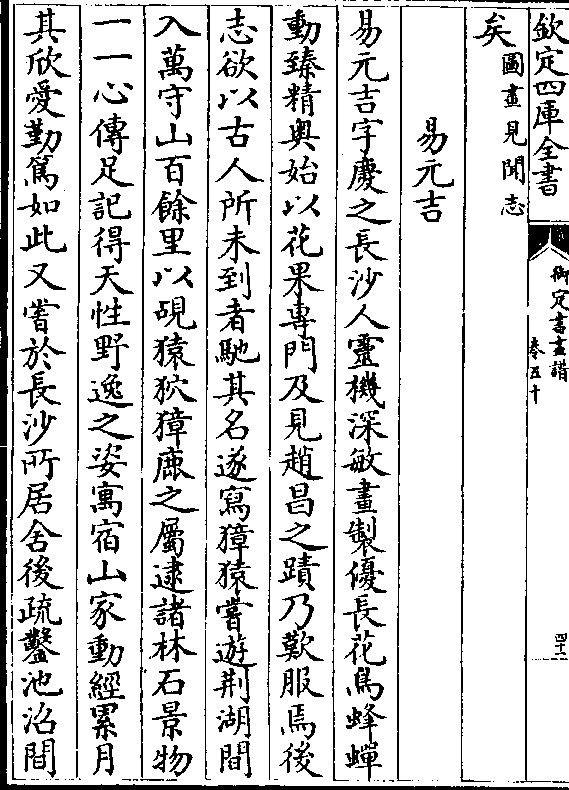 欽定四庫全書
御定書畫譜
卷五十
四十二
矣
圖畫見聞志
易元吉
易元吉字慶之長沙人靈機深敏畫製優長花鳥蜂蟬
動臻精奥始以花果專門及見趙昌之蹟乃歎服焉後
志欲以古人所未到者馳其名遂寫獐猿嘗遊荆湖間
入萬守山百餘里以覘猿狖獐鹿之屬逮諸林石景物
一一心傳足記得天性野逸之姿寓宿山家動經累月
其欣愛勤篤如此又嘗於長沙所居舍後疏鑿池沼間